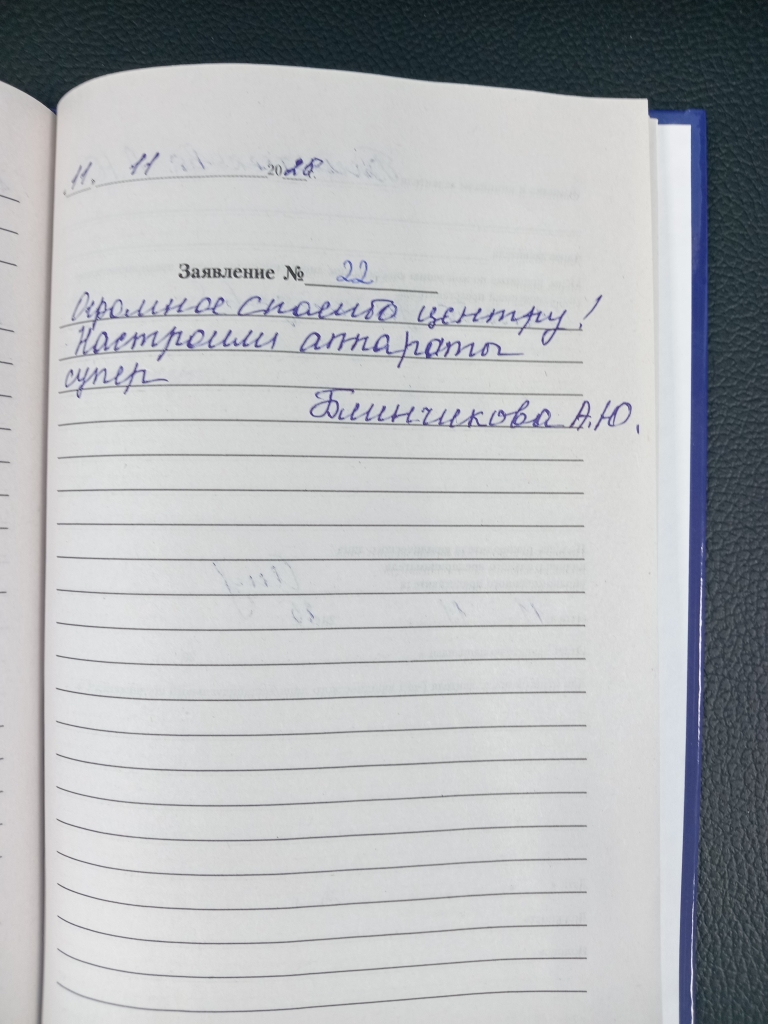 11. 11 2025
Заявление № 22
Огромное спасибо центру!
Настроили аппараты
супер
Блинчикова А.Ю.